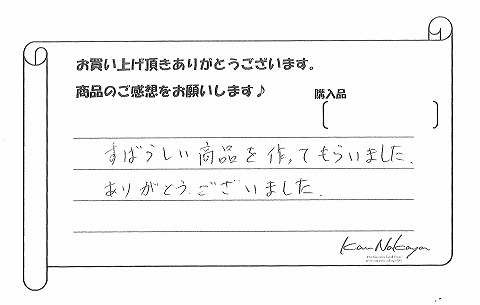 お買い上げ頂きありがとうございます。
商品のご感想をお願いします♪
購入品
すばらしい商品を作ってもらいました.
ありがとうございました.
Kan Nakaya